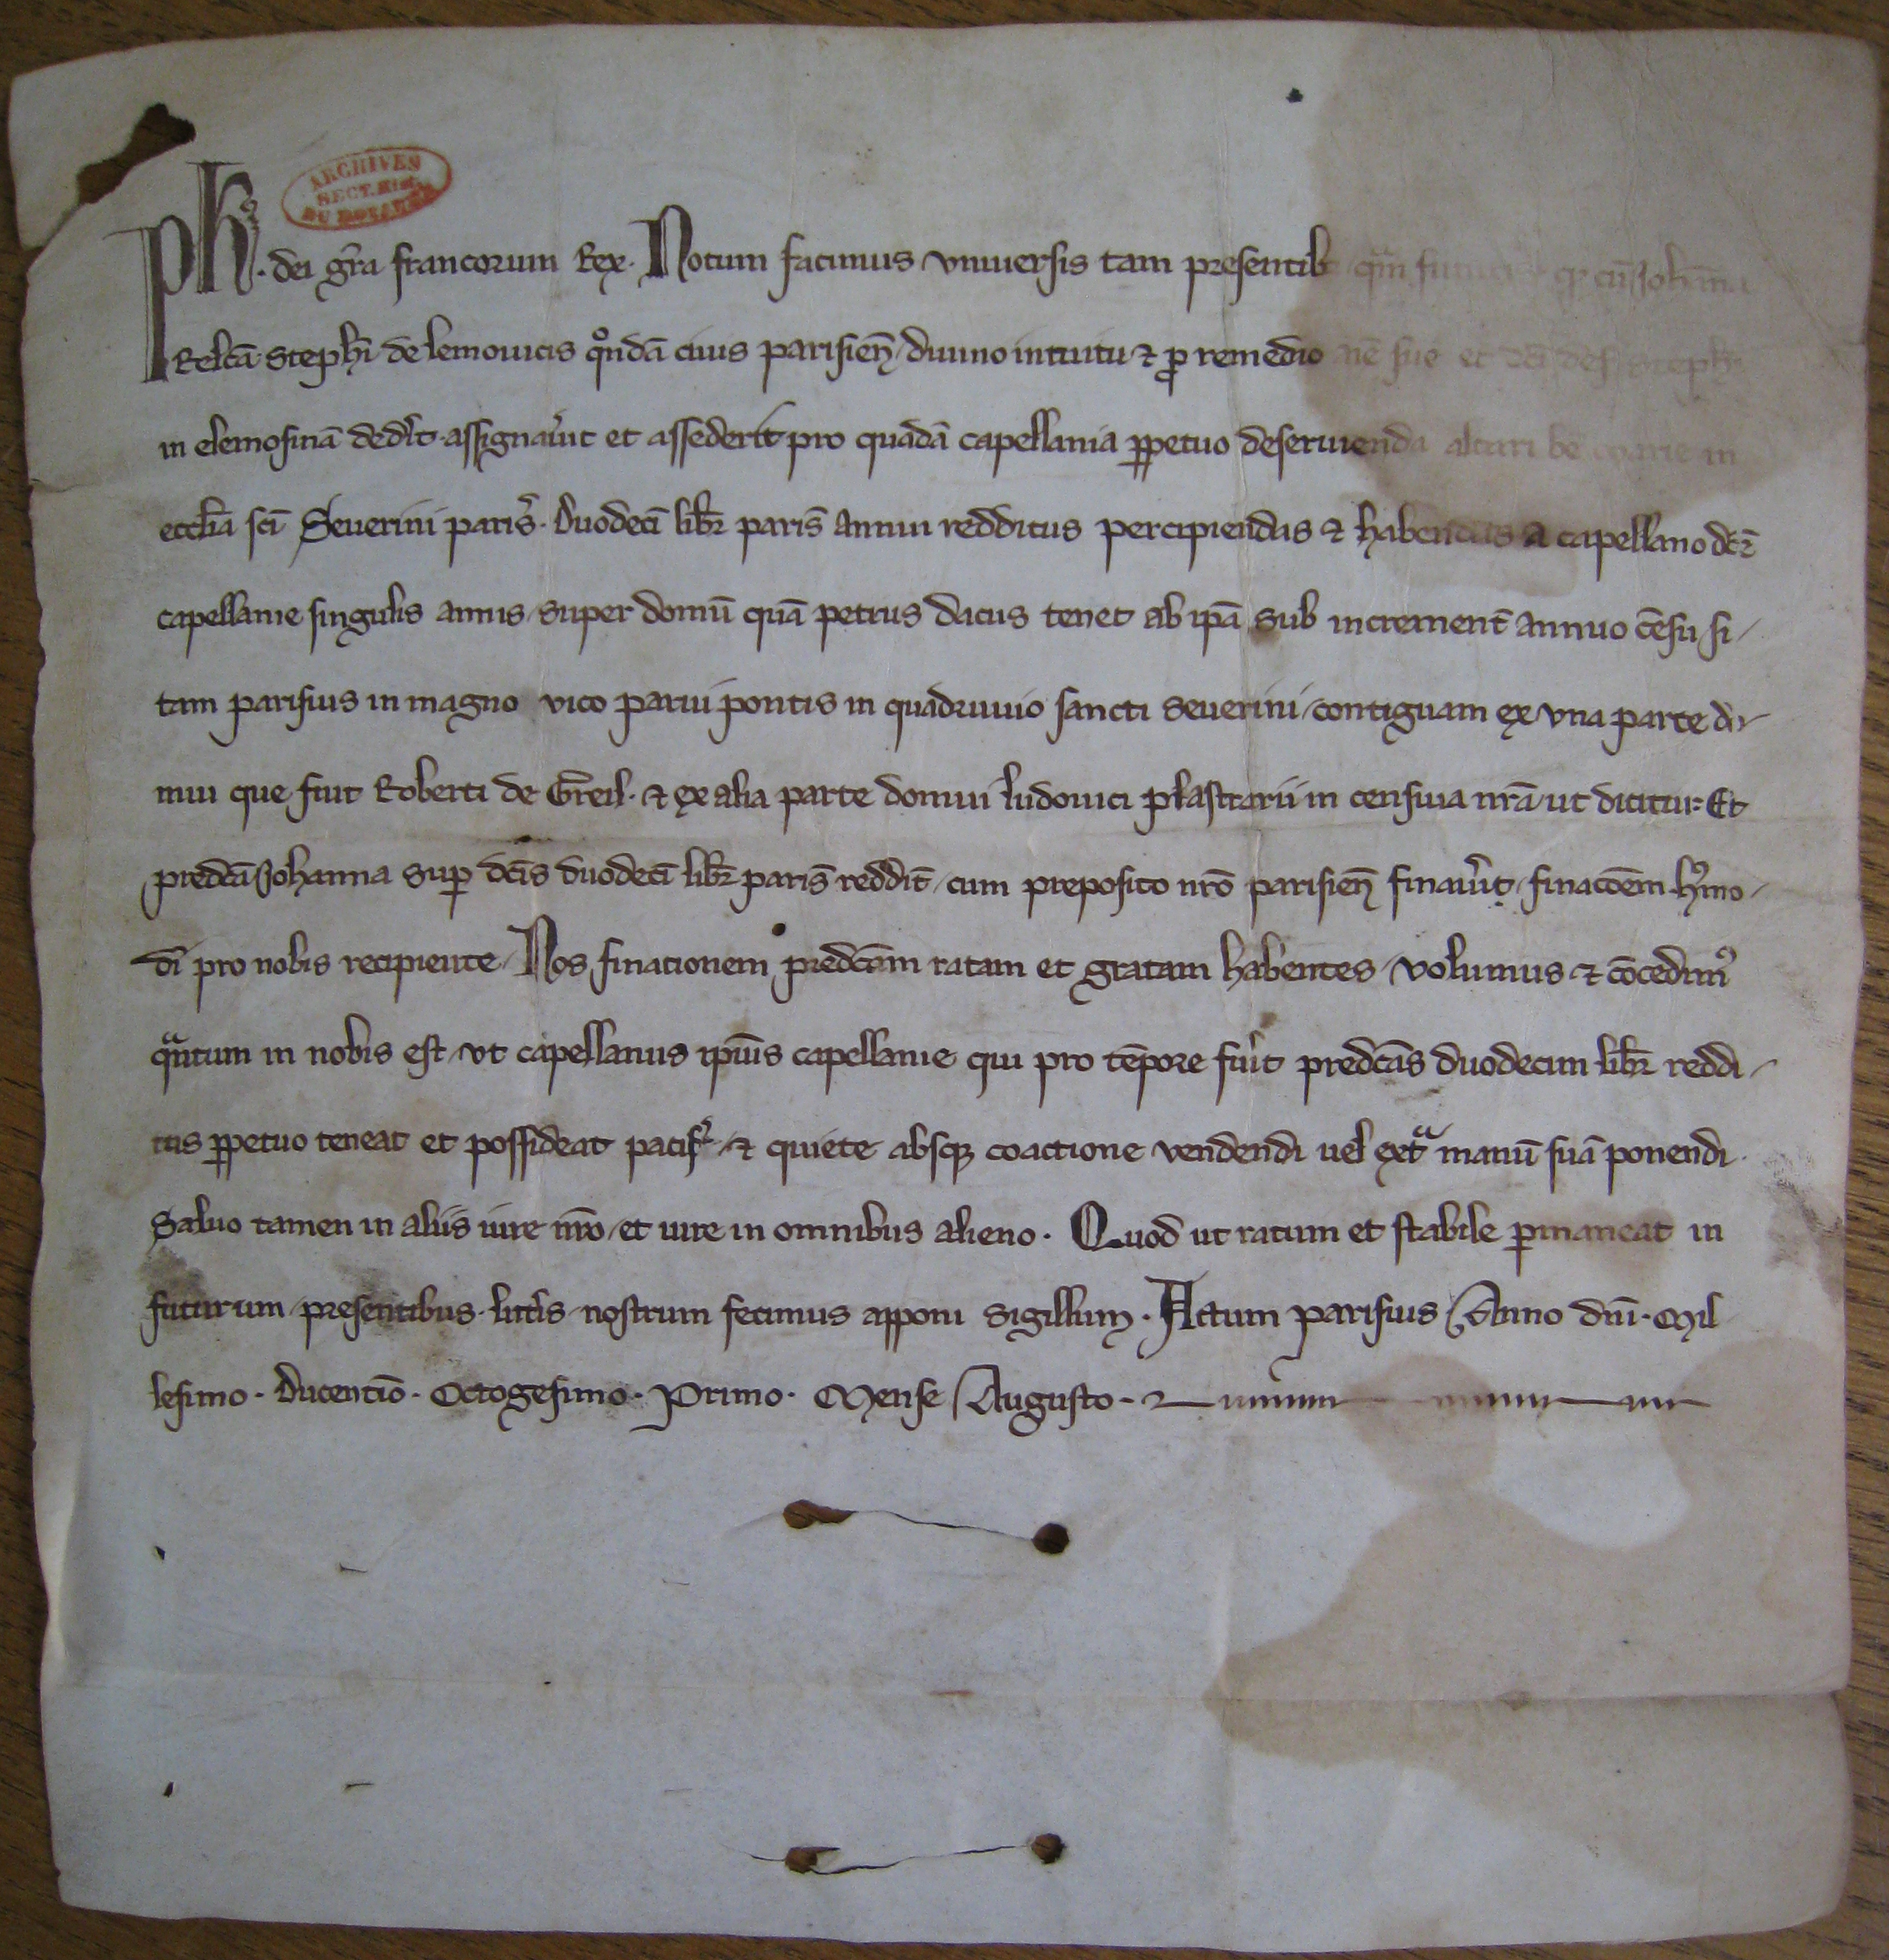 ARCHIVES
SECT. Hist.
DU ROYAUME
Ph̓s. dei gr̃a francorum Rex. Notum facimus vniuersis tam presentib; qᵃm futuris qȝ cũ Johãna
Relc̃a Steph̃i de lemouicis qᵒndã ciuis parisieñ, diuino intuitu ⁊ ꝓ remedio aĩe sue et dc̃i def Steph̃i
in elemosinã ded̓it assignau̓it et assederit pro quadã capellania ꝑpetuo deseruienda altari bẽ marie in
eccl̃ia sc̃i Seuerini paris̓. duodecĩ libr̃ paris̃ annui redditus percipiendas ⁊ habendas a capellano dc̃e
capellanie singulis annis, super domũ quã petrus dacus tenet ab ip̃a sub increment̃ annuo cẽsu, si-
tam parisius in magno vico parui pontis in quadruuio sancti Seuerini, contiguam ex vna parte do-
mui que fuit Roberti de Greil. ⁊ ex alia parte domui ludouici plastrarii in censiua nr̃a ut dicitur. Et
predc̃a Johanna sup̱ dc̃is duodecĩ libr̃ paris̃ reddit̃, cum preposito nr̃o parisieñ finau̓it, finac̃oem hᵘmo-
di pro nobis recipiente, Nos finationem predc̃am ratam et gratam habentes, volumus ⁊ cõcedim᷒
qᵃntum in nobis est, vt capellanus ip̃ius capellanie qui pro tẽpore fu̓it predc̃as duodecim libr̃ reddi-
tus ꝑpetuo teneat et possideat pacif̓, ⁊ quiete absqȝ coactione vendendi uel extᵃ manũ suã ponendi.
Saluo tamen in aliis iure nr̃o, et iure in omnibus alieno. Quod ut ratum et stabile ꝑmaneat in
futurum, presentibus litt̓is nostrum fecimus apponi sigillum. Actum parisius Anno dñi. Mil
lesimo. Ducentẽo. Octogesimo. Primo. Mense Augusto.